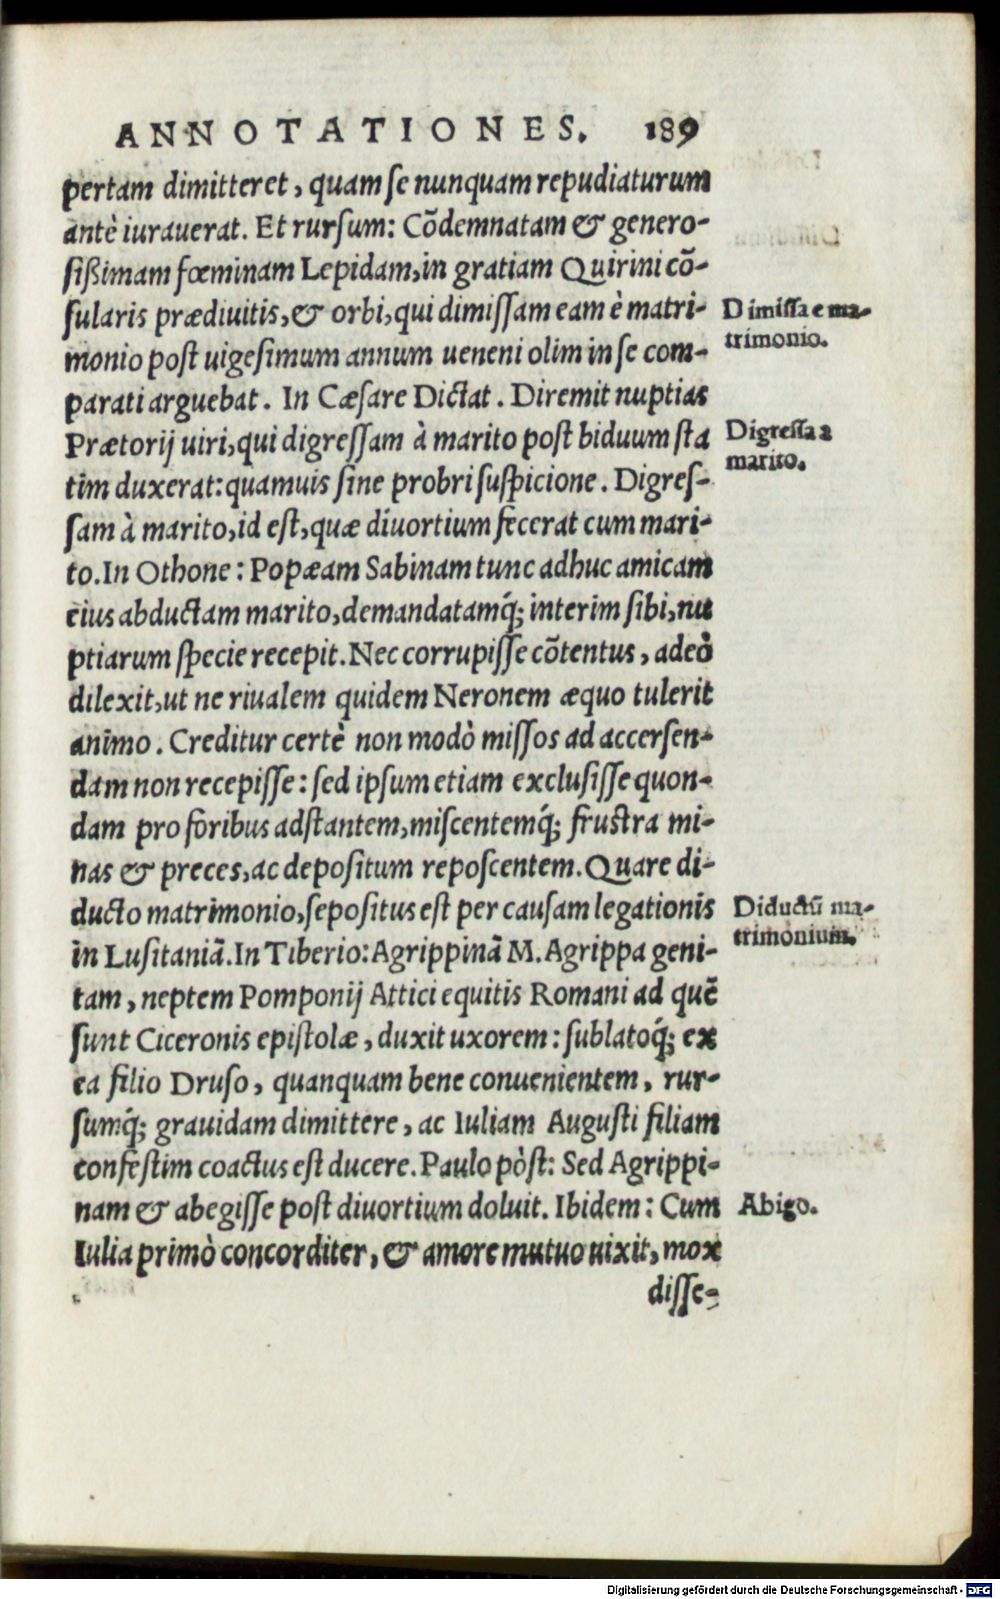 ANNOTATIONES. 189
pertam dimitteret, quam se nunquam repudiaturum
antè iurauerat. Et rursum: Cõdemnatam & genero-
sißimam fœminam Lepidam, in gratiam Quirini cõ-
sularis prædiuitis, & orbi, qui dimissam eam è matri-
Dimissa e ma-
trimonio.
monio post uigesimum annum ueneni olim in se com-
parati arguebat. In Cæsare Dictat. Diremit nuptias
Prætorij uiri, qui digressam à marito post biduum sta
Digressa a
marito.
tim duxerat: quamuis sine probri suspicione. Digres-
sam à marito, id est, quæ diuortium fecerat cum mari-
to. In Othone: Popæam Sabinam tunc adhuc amicam
eius abductam marito, demandatamq́; interim sibi, nu
ptiarum specie recepit. Nec corrupisse cõtentus, adeò
dilexit, ut ne riualem quidem Neronem æquo tulerit
animo. Creditur certè non modò missos ad accersen-
dam non recepisse: sed ipsum etiam exclusisse quon-
dam pro foribus adstantem, miscentemq́; frustra mi-
nas & preces, ac depositum reposcentem. Quare di-
ducto matrimonio, sepositus est per causam legationis
Diductũ ma-
trimonium.
in Lusitaniã. In Tiberio: Agrippinã M. Agrippa geni-
tam, neptem Pomponij Attici equitis Romani ad quẽ
sunt Ciceronis epistolæ, duxit uxorem: sublatoq́; ex
ea filio Druso, quanquam bene conuenientem, rur-
sumq́; grauidam dimittere, ac Iuliam Augusti filiam
confestim coactus est ducere. Paulo pòst: Sed Agrippi-
nam & abegisse post diuortium doluit. Ibidem: Cum
Abigo.
Iulia primò concorditer, & amore mutuo uixit, mox
disse-
Digitalisierung gefördert durch die Deutsche Forschungsgemeinschaft - DFG